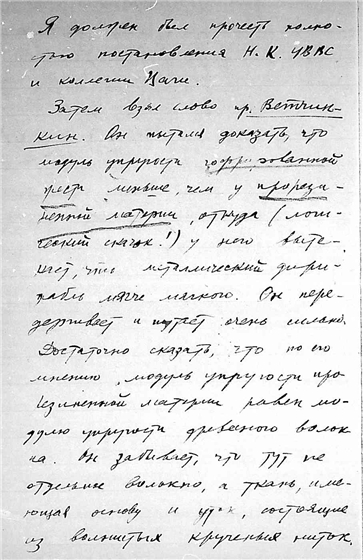 Я должен был прочесть полно-
стью постановления Н. К. УВВС
и коллегии Цаги.
Затем взял слово пр. Ветчин-
кин. Он пытался доказать, что
модуль упругости гофрированной
жести меньше, чем у прорези-
ненной материи, откуда (логи-
ческий скачок!) у него выте-
кает, что металлический дири-
жабль мягче мягкого. Он пере-
держивает и путает очень сильно.
Достаточно сказать, что по его
мнению, модуль упругости про-
резиненной материи равен мо-
дулю упругости древесного волок
на. Он забывает, что тут не
отдельные волокно, а ткань, име-
ющая основу и уток, состоящие
из волнистых крученых ниток